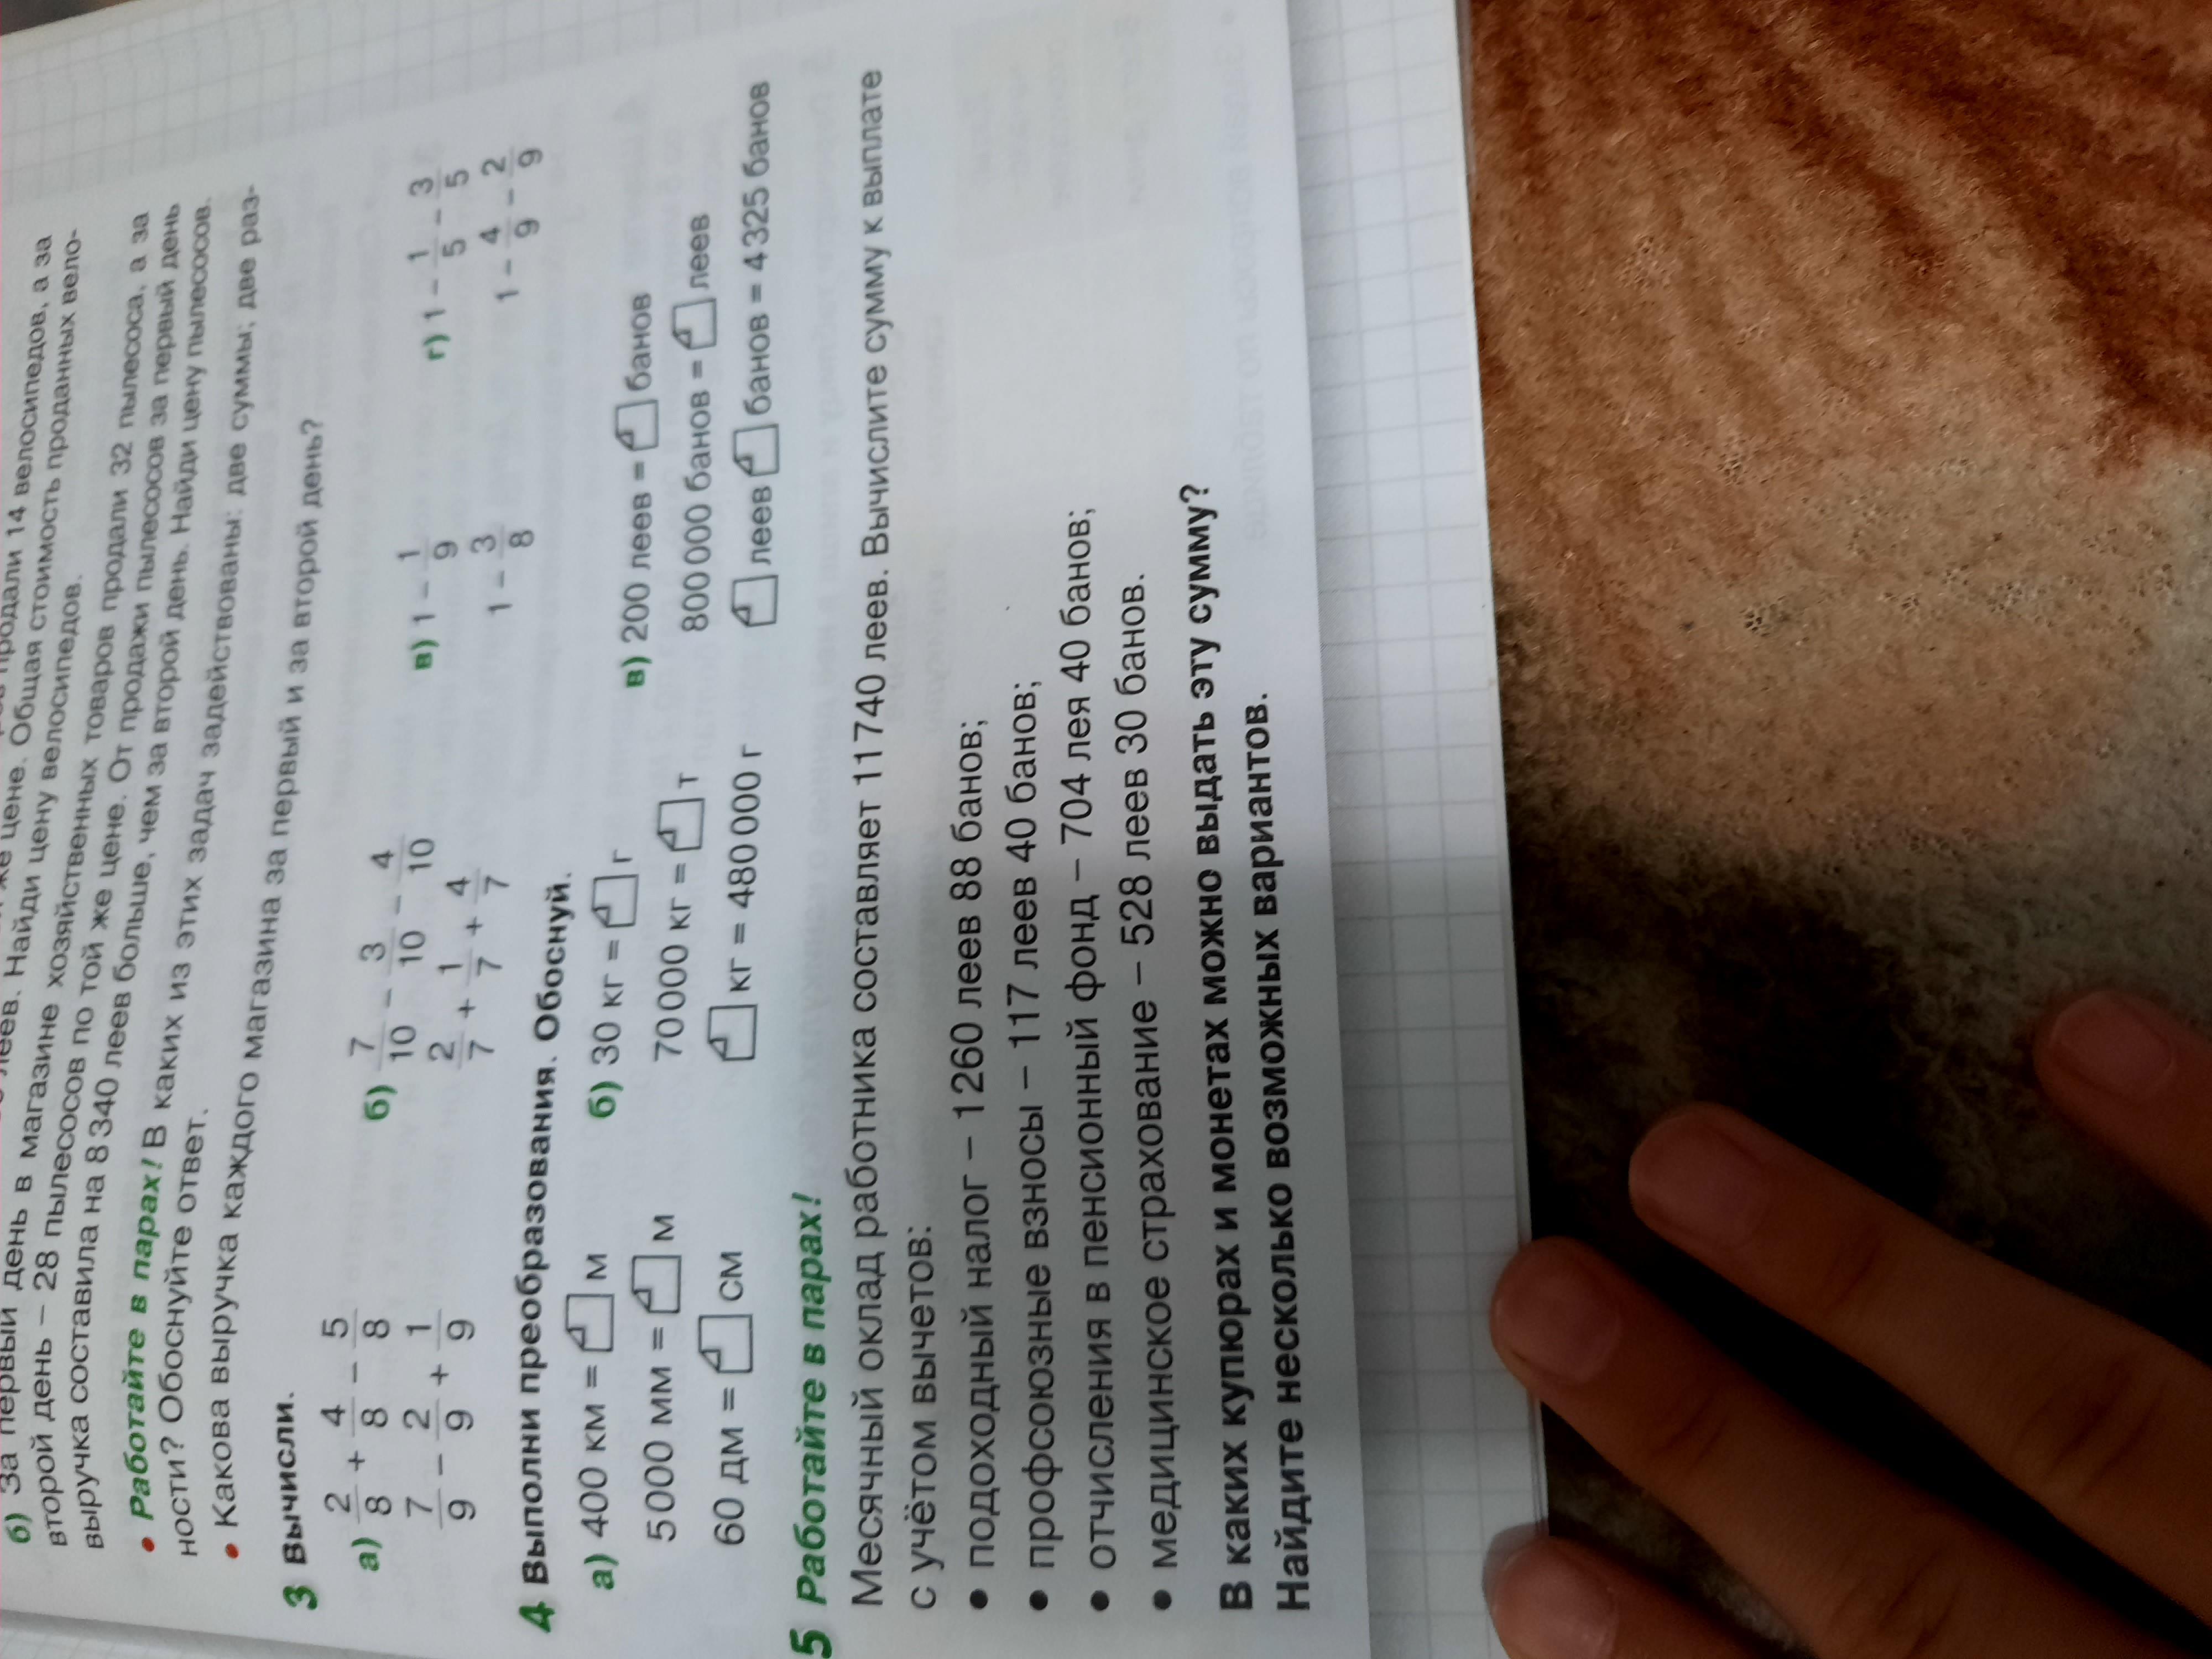 продали 14 велосипедов, а за
леев. Найди цену велосипедов. Общая стоимость проданных вело-
б) За первый день в магазине хозяйственных товаров продали 32 пылесоса, а за
второй день – 28 пылесосов по той же цене. От продажи пылесосов за первый день
выручка составила на 8 340 леев больше, чем за второй день. Найди цену пылесосов.
• Работайте в парах! В каких из этих задач задействованы: две суммы; две раз-
ности? Обоснуйте ответ.
• Какова выручка каждого магазина за первый и за второй день?
3 Вычисли.
а) 2/8 + 4/8 – 5/8 б) 7/10 – 3/10 – 4/10 в) 1 – 1/9 г) 1 – 1/5 – 3/5
7/9 – 2/9 + 1/9 2/7 + 1/7 + 4/7 1 – 3/8 1 – 4/9 – 2/9
4 Выполни преобразования. Обоснуй.
а) 400 км = □ м б) 30 кг = □ г в) 200 леев = □ банов
5 000 мм = □ м 70 000 кг = □ т 800 000 банов = □ леев
60 дм = □ см □ кг = 480 000 г □ леев □ банов = 4 325 банов
5 Работайте в парах!
Месячный оклад работника составляет 11 740 леев. Вычислите сумму к выплате
с учётом вычетов:
• подоходный налог – 1260 леев 88 банов;
• профсоюзные взносы – 117 леев 40 банов;
• отчисления в пенсионный фонд – 704 лея 40 банов;
• медицинское страхование – 528 леев 30 банов.
В каких купюрах и монетах можно выдать эту сумму?
Найдите несколько возможных вариантов.